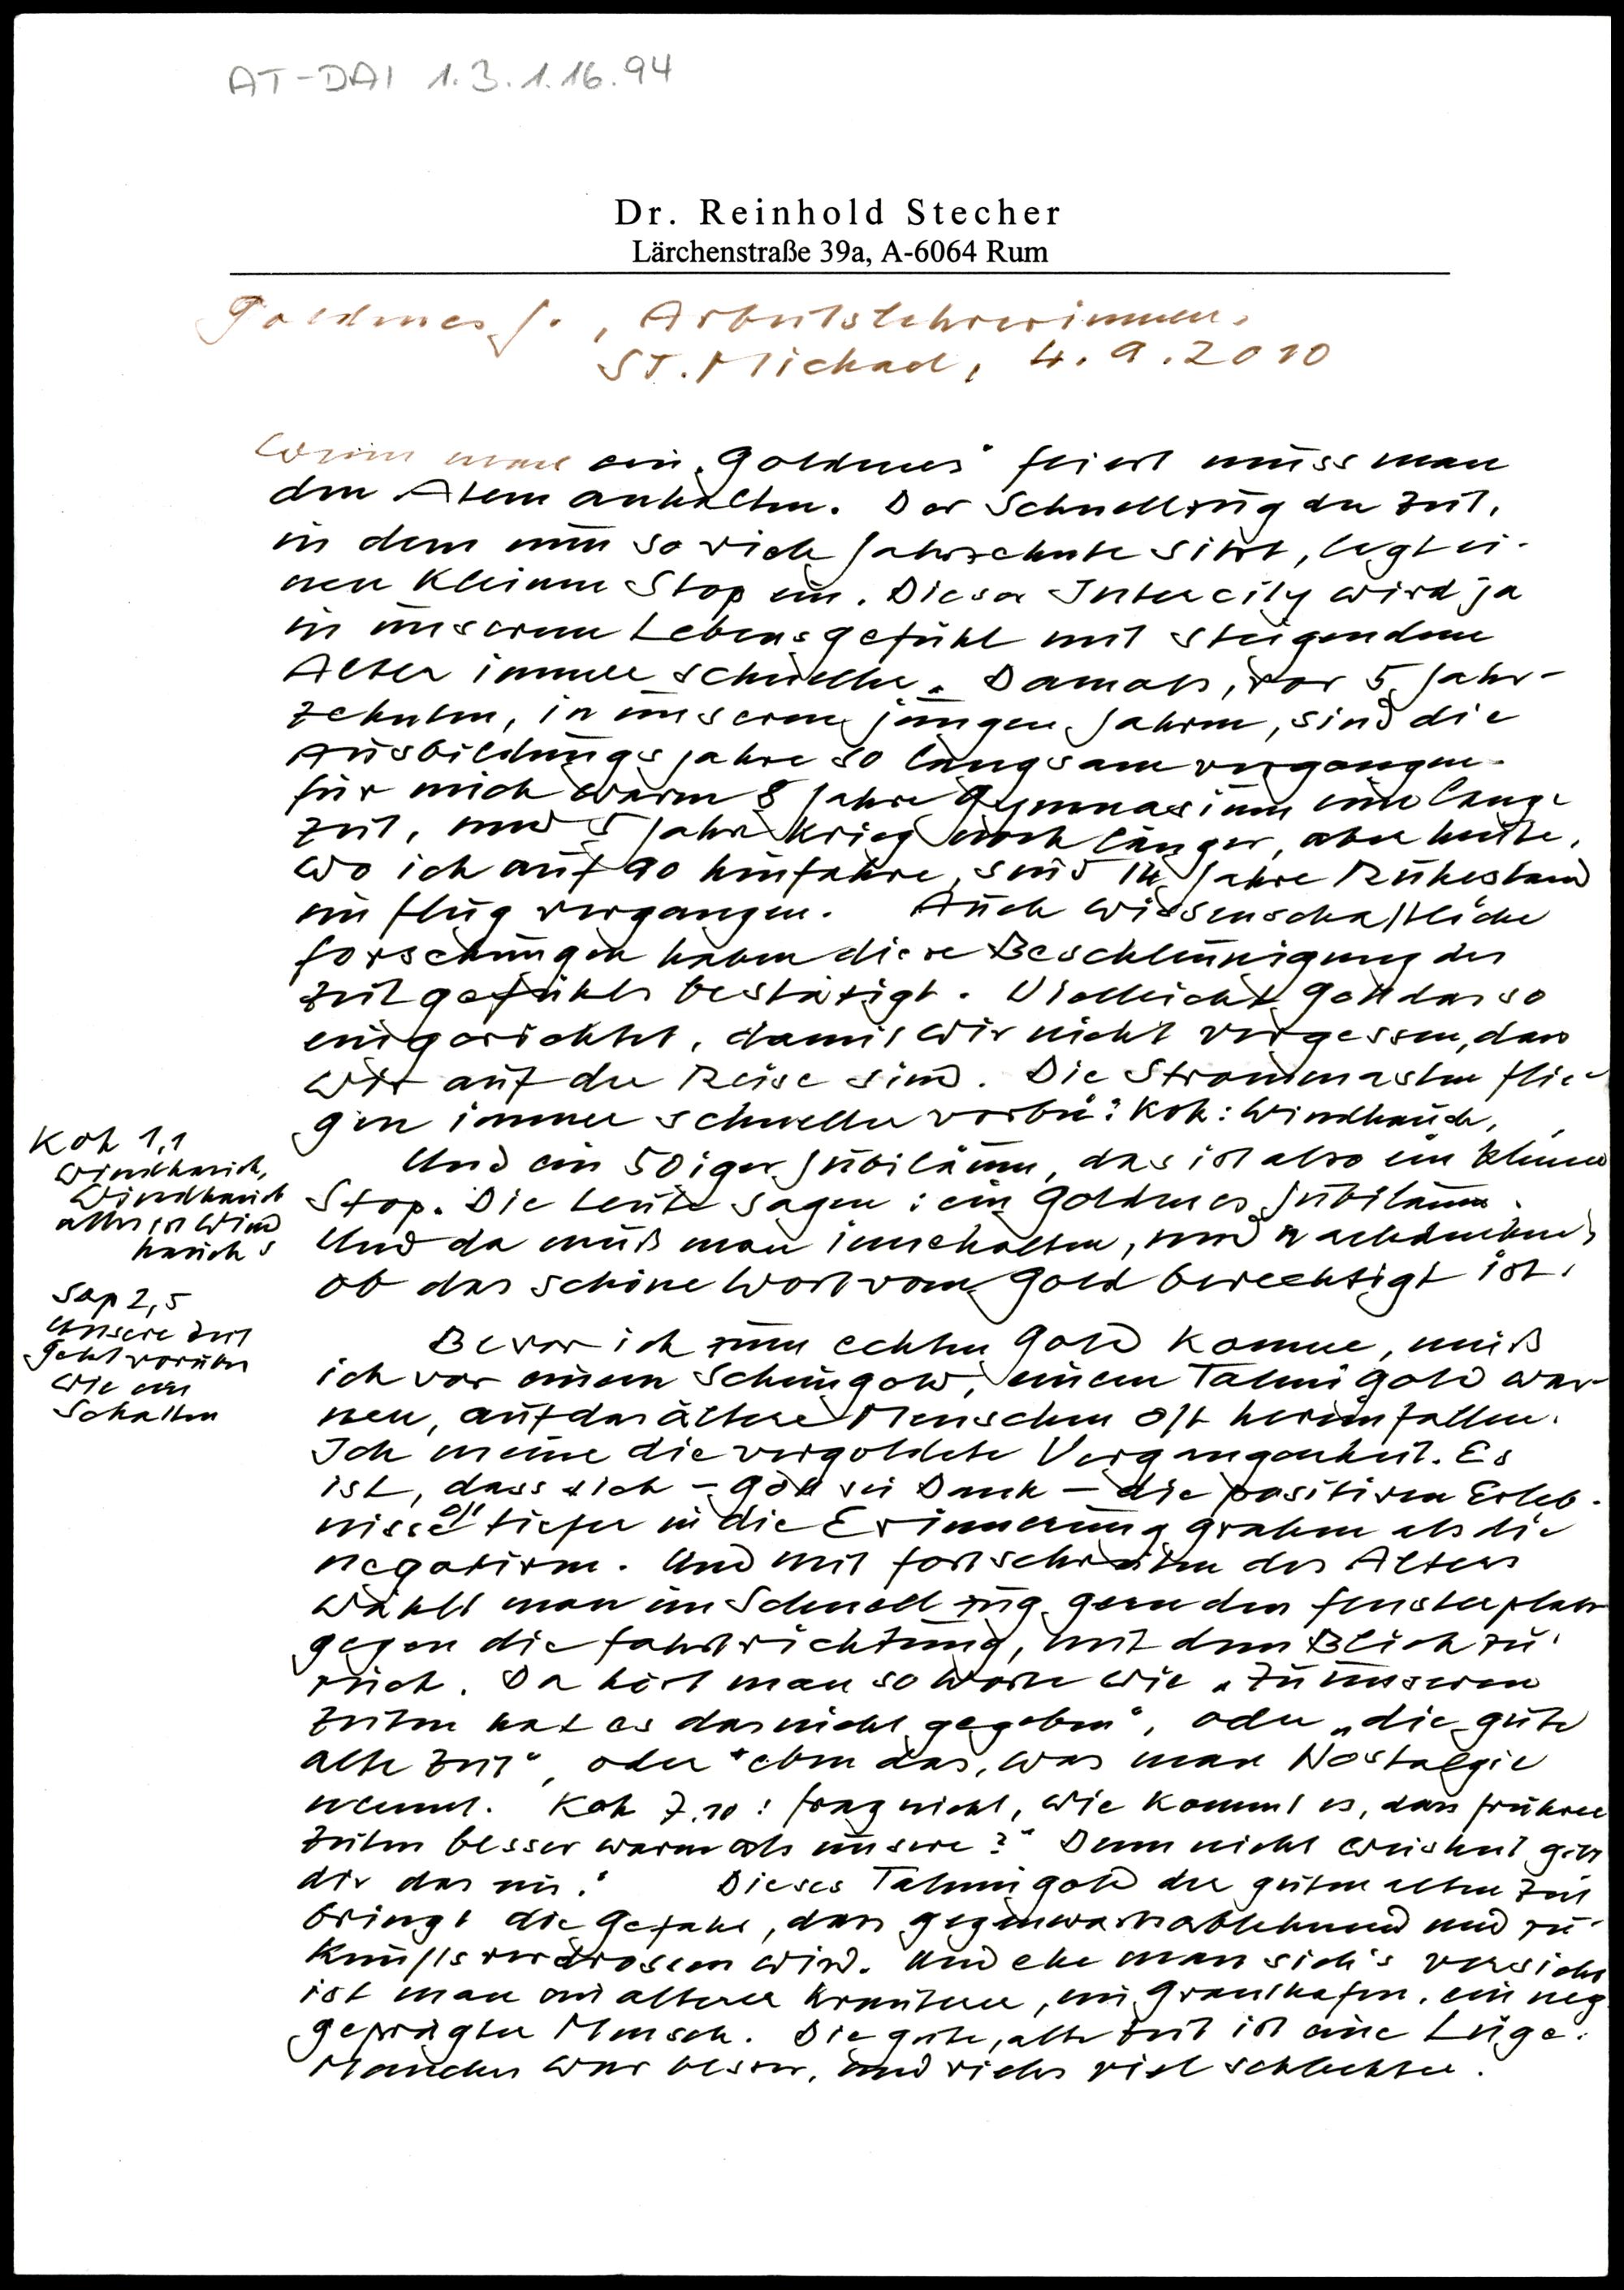 AT-DAI 1.3.1.16.94
Dr. Reinhold Stecher
Lärchenstraße 39a, A-6064 Rum
Goldenes J., Arbeitslehrerinnen,
St. Michael, 4.9.2010
Wenn man ein „Goldenes" feiert muss man
den Atem anhalten. Der Schnellzug der Zeit,
in dem nun so viele Jahrzehnte sitzt, legt ei-
nen kleinen Stop ein. Dieser Intercity wird ja
in unserem Lebensgefühl mit steigendem
Alter immer schneller. Damals, vor 5 Jahr-
zehnten, in unseren jungen Jahren, sind die
Ausbildungsjahre so langsam vergangen.
für mich waren 8 Jahre Gymnasium eine lange
Zeit, und 5 Jahre Krieg noch länger, aber heute,
wo ich auf 90 hinfahre, sind 14 Jahre Ruhestand
im Flug vergangen. Auch wissenschaftliche
Forschungen haben diese Beschleunigung des
Zeitgefühls bestätigt. Vielleicht Gott das so
eingerichtet, damit wir nicht vergessen, dass
wir auf der Reise sind. Die Strommasten flie-
gen immer schneller vorbei: Koh: Windhauch,
Koh 1,1
Windhauch,
Windhauch
alles ist Wind
hauch
Und ein 50iger Jubiläum, das ist also ein kleiner
Stop. Die Leute sagen: ein goldenes Jubiläum.
Und da muß man innehalten, und nachdenken,
ob das schöne Wort vom Gold berechtigt ist.
Sap 2,5
Unsere Zeit
geht vorüber
wie ein
Schatten
Bevor ich zum echten Gold komme, muß
ich vor einem Scheingold, einem Talmigold war-
nen, auf das ältere Menschen oft hereinfallen.
Ich meine die vergoldete Vergangenheit. Es
ist, dass sich – Gott sei Dank – die positiven Erleb-
nisse oft tiefer in die Erinnerung graben als die
negativen. Und mit fortschreiten des Alters
wählt man im Schnellzug gern den Fensterplatz
gegen die Fahrtrichtung, mit dem Blick zu-
rück. Da hört man so Worte wie „Zu unseren
Zeiten hat es das nicht gegeben", oder „die gute
alte Zeit", oder eben das, was man Nostalgie
nennt. Koh 7,10: frag nicht, wie kommt es, dass frühere
Zeiten besser waren als unsere?" Denn nicht Weisheit gibt
dir das ein." Dieses Talmigold der guten alten Zeit
bringt die Gefahr, dass gegenwartsablehnend und zu-
kunftsverdrossen wird. Und ehe man sich's versieht
ist man ein alterer Krauterer, ein Granthafen, ein neg
geprägter Mensch. Die gute, alte Zeit ist eine Lüge:
Manches war besser, und vieles viel schlechter.